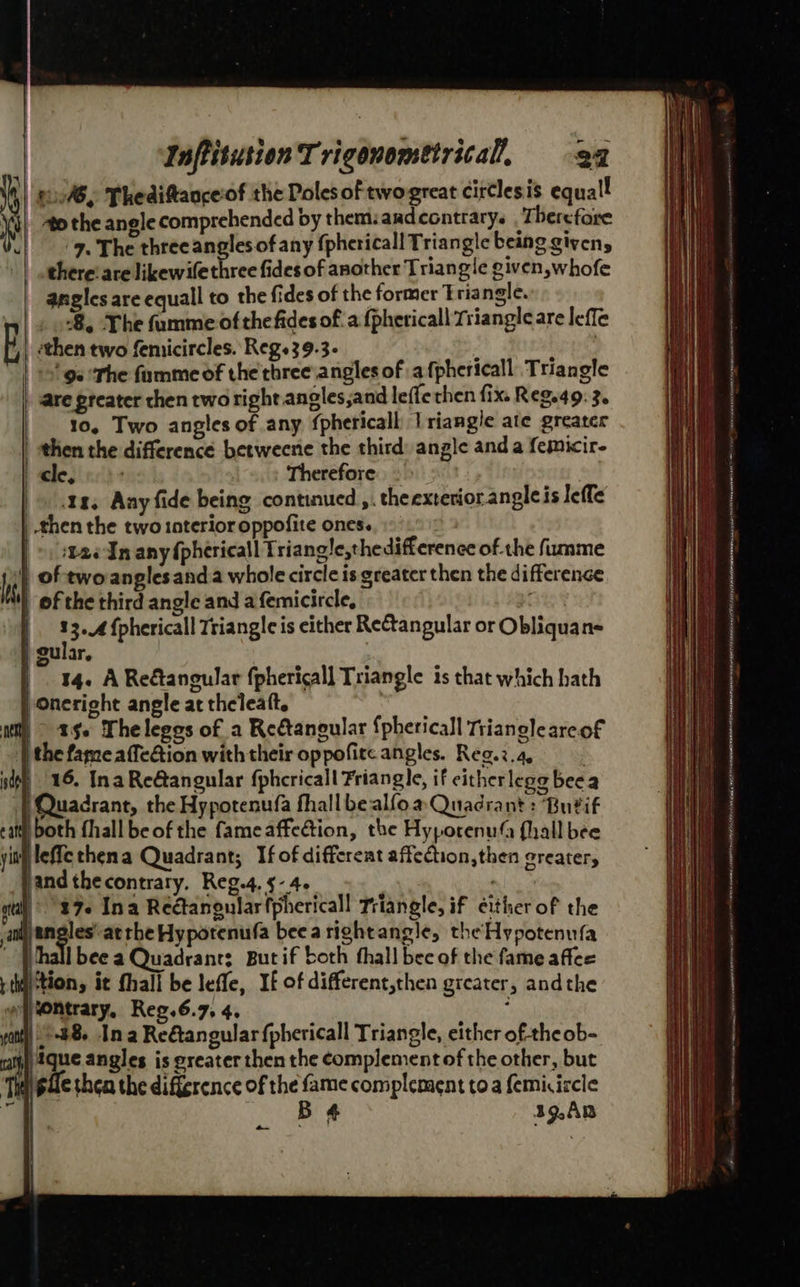 Inſtitution Trigonometricall. 23
6. The diſtance of the Poles of two great circles is equall
to the angle comprehended by them: and contrary. Therefore
7. The three angles of any ſphericall Triangle being given,
there are likewiſe three ſides of another Triangle given, whoſe
angles are equall to the ſides of the former Triangle.
8. The ſumme of the ſides of a ſphericall Triangle are leſſe
then two ſemicircles. Reg. 39. 3.
9. The ſumme of the three angles of a ſphericall Triangle
are greater then two right angles, and leſſe then ſix. Reg. 49. 3.
10. Two angles of any ſphericall Triangle are greater
then the difference betweene the third angle and a ſemicir-
cle. Therefore
11. Any ſide being continued, the exterior angle is leſſe
then the two interior oppoſite ones.
12. In any ſphericall Triangle, the difference of the ſumme
of two angles and a whole circle is greater then the difference
of the third angle and a ſemicircle.
13. A ſphericall Triangle is either Rectangular or Obliquan-
gular.
14. A Rectangular ſphericall Triangle is that which hath
one right angle at the leaſt.
15. The leggs of a Rectangular ſphericall Triangle are of
the ſame affection with their oppoſite angles. Reg. 2. 4.
16. In a Rectangular ſphericall Triangle, if either legg bee a
Quadrant, the Hypotenuſa ſhall be alſo a Quadrant: But if
both ſhall be of the ſame affection, the Hypotenuſa ſhall bee
leſſe then a Quadrant; If of different affection, then greater,
and the contrary. Reg. 4. 5. 4.
17. In a Rectangular ſphericall Triangle, if either of the
angles at the Hypotenuſa bee a right angle, the Hypotenuſa
ſhall bee a Quadrant: But if both ſhall bee of the ſame affec-
tion, it ſhall be leſſe, If of different, then greater, and the
contrary. Reg. 6. 7. 4.
18. In a Rectangular ſphericall Triangle, either of the ob-
lique angles is greater then the complement of the other, but
leſſe then the difference of the ſame complement to a ſemicircle
B 4 19. An